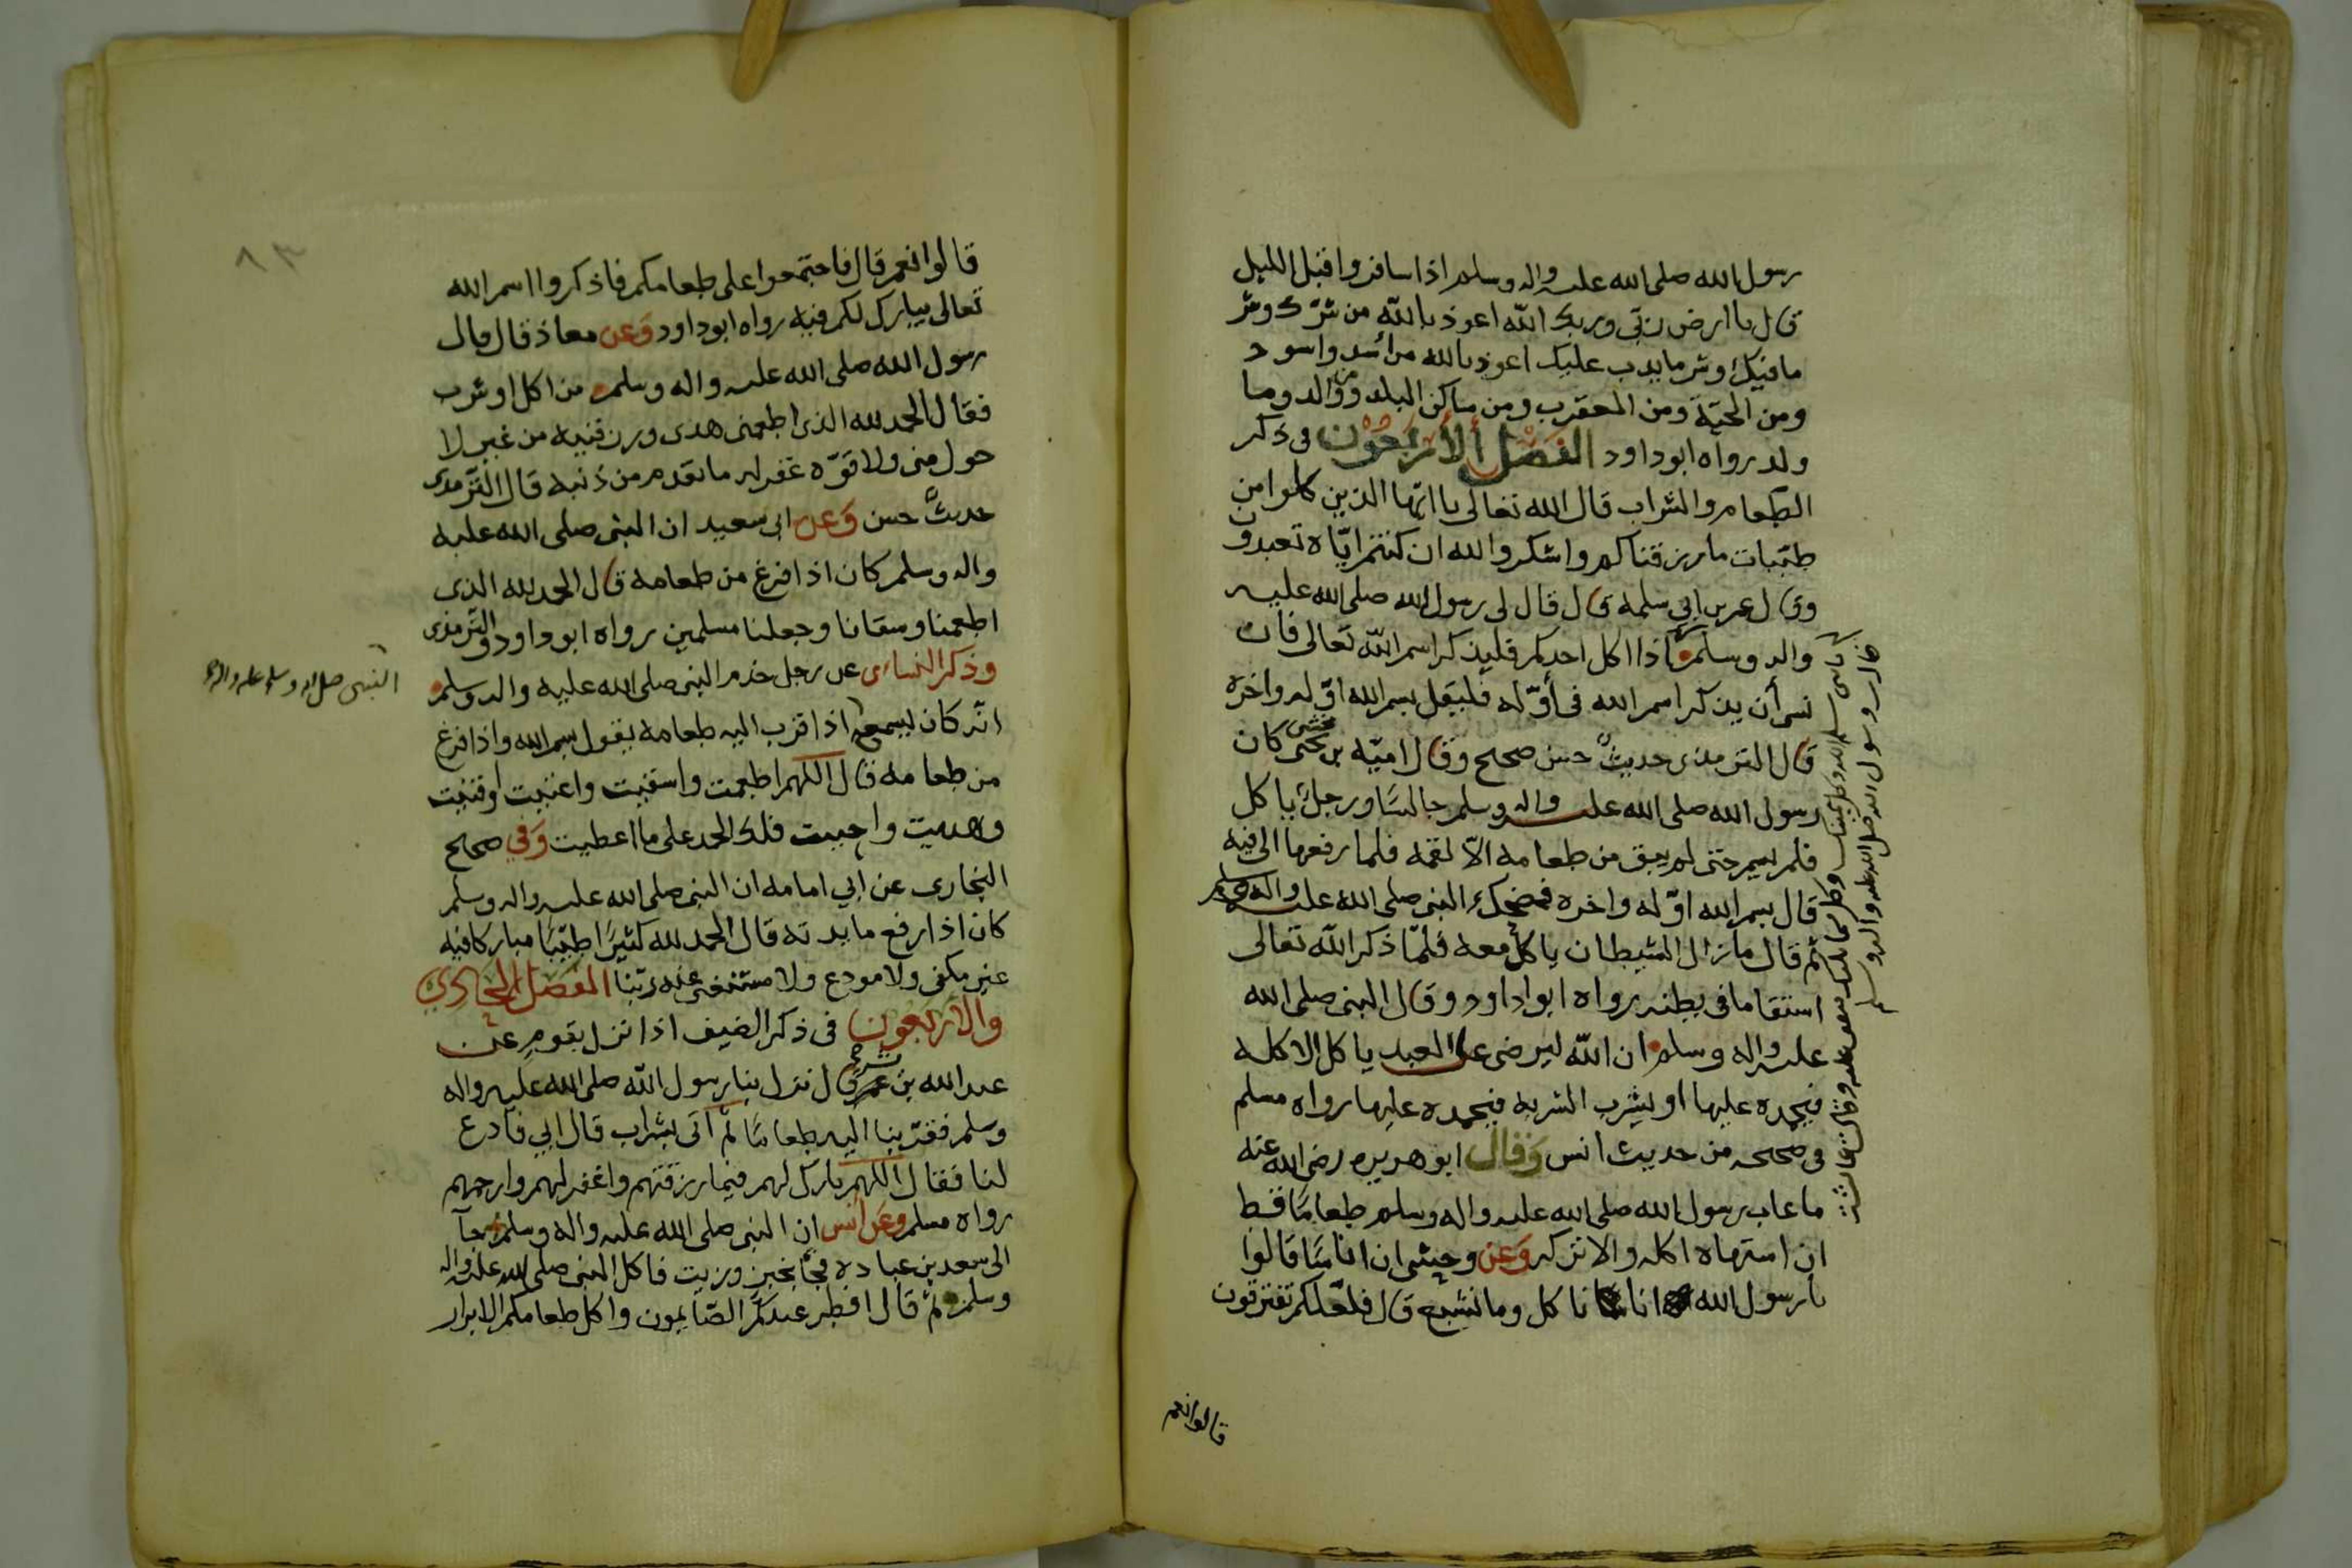 رسول الله صلى الله عليه واله وسلم اذا سافر واقبل الليل
قال يا ارض ربي وربك الله اعوذ بالله من شرك وشر
ما فيك وشر ما يدب عليك اعوذ بالله من اسد واسود
ومن الحيّة ومن العقرب ومن ساكن البلد ومن والد وما
ولد رواه ابوداود الفصل الأربعون في ذكر
الطعام والشراب قال الله تعالى يا ايّها الذين كلوا من
طيّبات ما رزقناكم واشكروا لله ان كنتم ايّاه تعبدون
وقال عمر بن ابي سلمه قال قال لي رسول الله صلى الله عليه
واله وسلم اذا اكل احدكم فليذكر اسم الله تعالى فان
نسي أن يذكر اسم الله في أوّله فليقل بسم الله اوّله واخره
قال الترمذي حديثٌ حسن صحيح وقال اميّة بن مخشى كان
رسول الله صلى الله عليه واله وسلم جالسًا ورجلٌ ياكل
فلم يسم حتى لم يبق من طعامه الاّ لقمة فلما رفعها الى فيه
قال بسم الله اوّله واخره فضحك النبي صلى الله عليه واله وسلم
ثم قال ما زال الشيطان ياكل معه فلمّا ذكر الله تعالى
استقا ما في بطنه رواه ابوا داود وقال النبي صلى الله
عليه واله وسلم ان الله ليرضى على العبد ياكل الاكلة
فيحمده عليها او يشرب الشربه فيحمده عليها رواه مسلم
في صحيحه من حديث انس وقال ابو هريره رضى الله عنه
ما عاب رسول الله صلى الله عليه واله وسلم طعامًا قط
ان اشتهاه اكله والا تركه وعن وحشي ان اناسًا قالوا
يا رسول الله انا ناكل وما نشبع قال فلعّلكم تفترقون
قالوا نعم
قالوا نعم قال فاجتمعوا على طعامكم فاذكروا اسم الله
تعالى يبارك لكم فيه رواه ابوداود وعن معاذ قال قال
رسول الله صلى الله عليه واله وسلم من اكل او شرب
فقال الحمد لله الذي اطعمني هدى ورزقنيه من غير لا
حول مني ولا قوّه غفر له ما تقدم من ذنبه قال الترّمذي
حديثٌ حسن وعن ابي سعيد ان النبي صلى الله عليه
واله وسلم كان اذا فرغ من طعامه قال الحمد لله الذي
اطعمنا وسقانا وجعلنا مسلمين رواه ابوداود والترّمذي
وذكر النسائى عن رجل خدم النبي صلى الله عليه واله وسلم
انّه كان يسمع اذا قرب اليه طعامه يقول بسم الله واذا فرغ
النبى صلى الله وسلم عليه واله
من طعامه قال اللهم اطعمت واسقيت واغنيت واقنيت
وهديت واحييت فلك الحمد على ما اعطيت وفي صحيح
البخارى عن ابي امامه ان النبي صلى الله عليه واله وسلم
كان اذا رفع مايدته قال الحمد لله كثيرًا طيّبًا مباركا فيه
غير مكفى ولا مودع ولا مستغنى عنه ربّنا الفصل الحادي
والاربعون في ذكر الضيف اذا نزل بقوم عن
عبدالله بن بسر قال نزل بنا رسول الله صلى الله عليه واله
وسلم فقرّبنا اليه طعامًا ثم اتى بشراب قال ابي فادع
لنا فقال اللهم بارك لهم فيما رزقتهم واغفر لهم وارحمهم
رواه مسلم وعن أنس ان النبي صلى الله عليه واله وسلم جآ
الى سعد بن عباده فجآ بخبز وزيت فاكل النبي صلى الله عليه واله
وسلم ثم قال افطر عندكم الصّايمون واكل طعامكم الابرار
٨٣